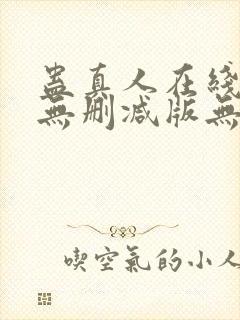 蛊真人在綫
無刪減版無
喫空氣的小人